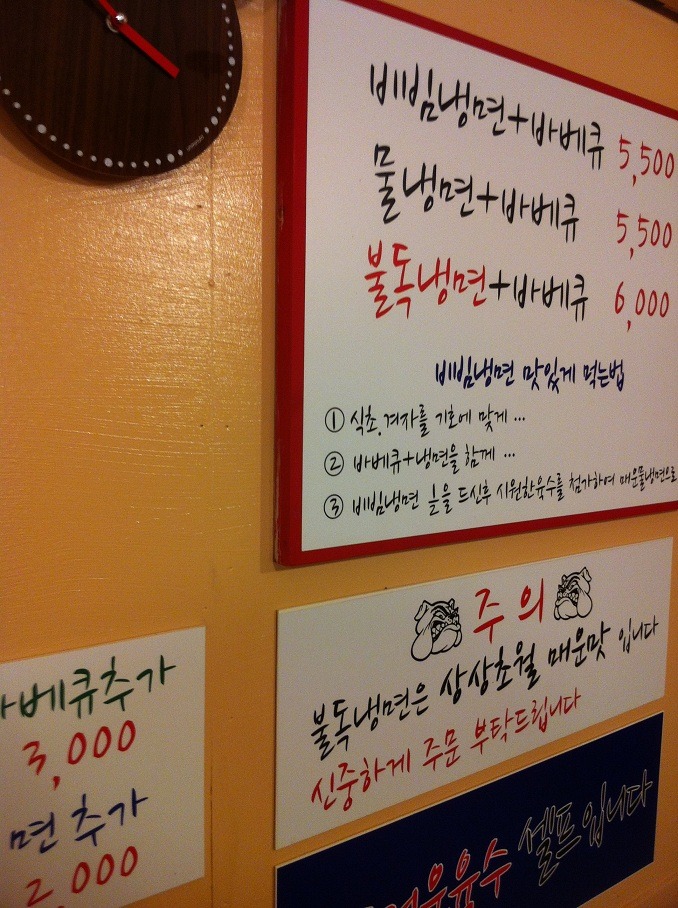 비빔냉면+바베큐 5,500
물냉면+바베큐 5,500
불독냉면+바베큐 6,000
비빔냉면 맛있게 먹는법
① 식초,겨자를 기호에 맞게 ...
② 바베큐+냉면을 함께 ...
③ 비빔냉면 ⅓을 드신후 시원한육수를 첨가하여 매운물냉면으로
주의
불독냉면은 상상초월 매운맛 입니다
신중하게 주문 부탁드립니다
바베큐추가
3,000
면 추가
2,000
육수 셀프입니다